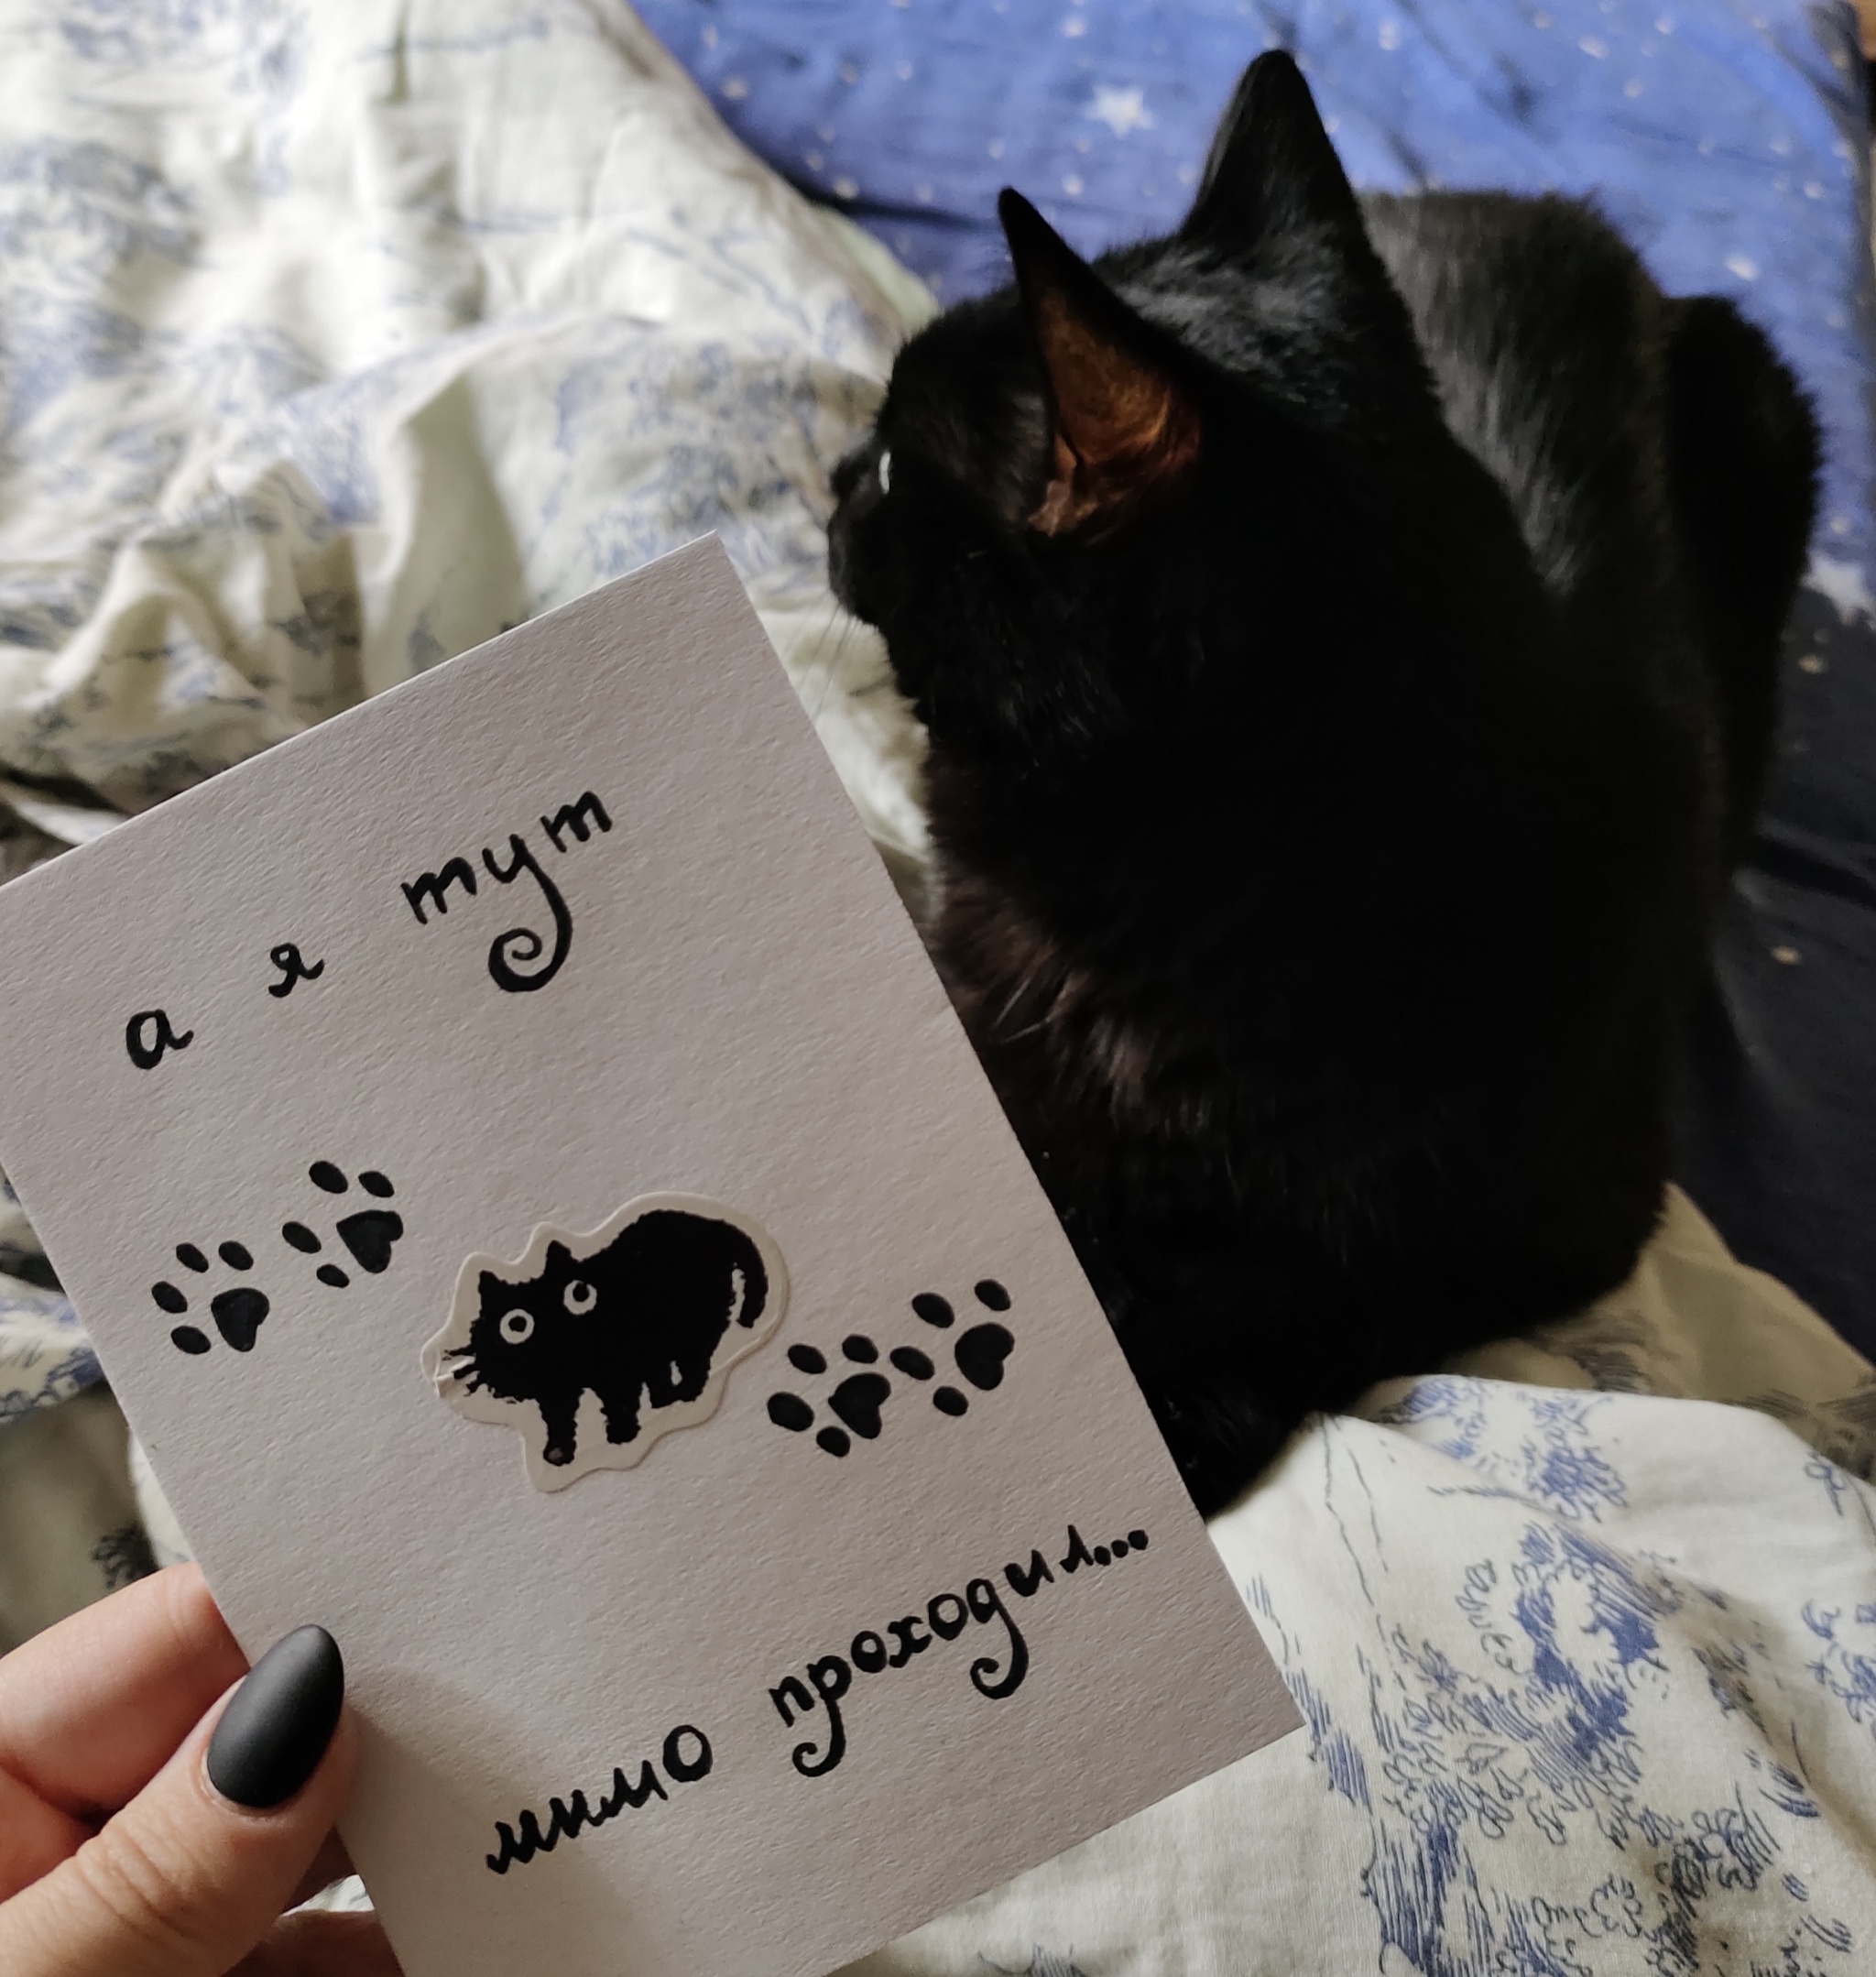 а я тут
мимо проходил...